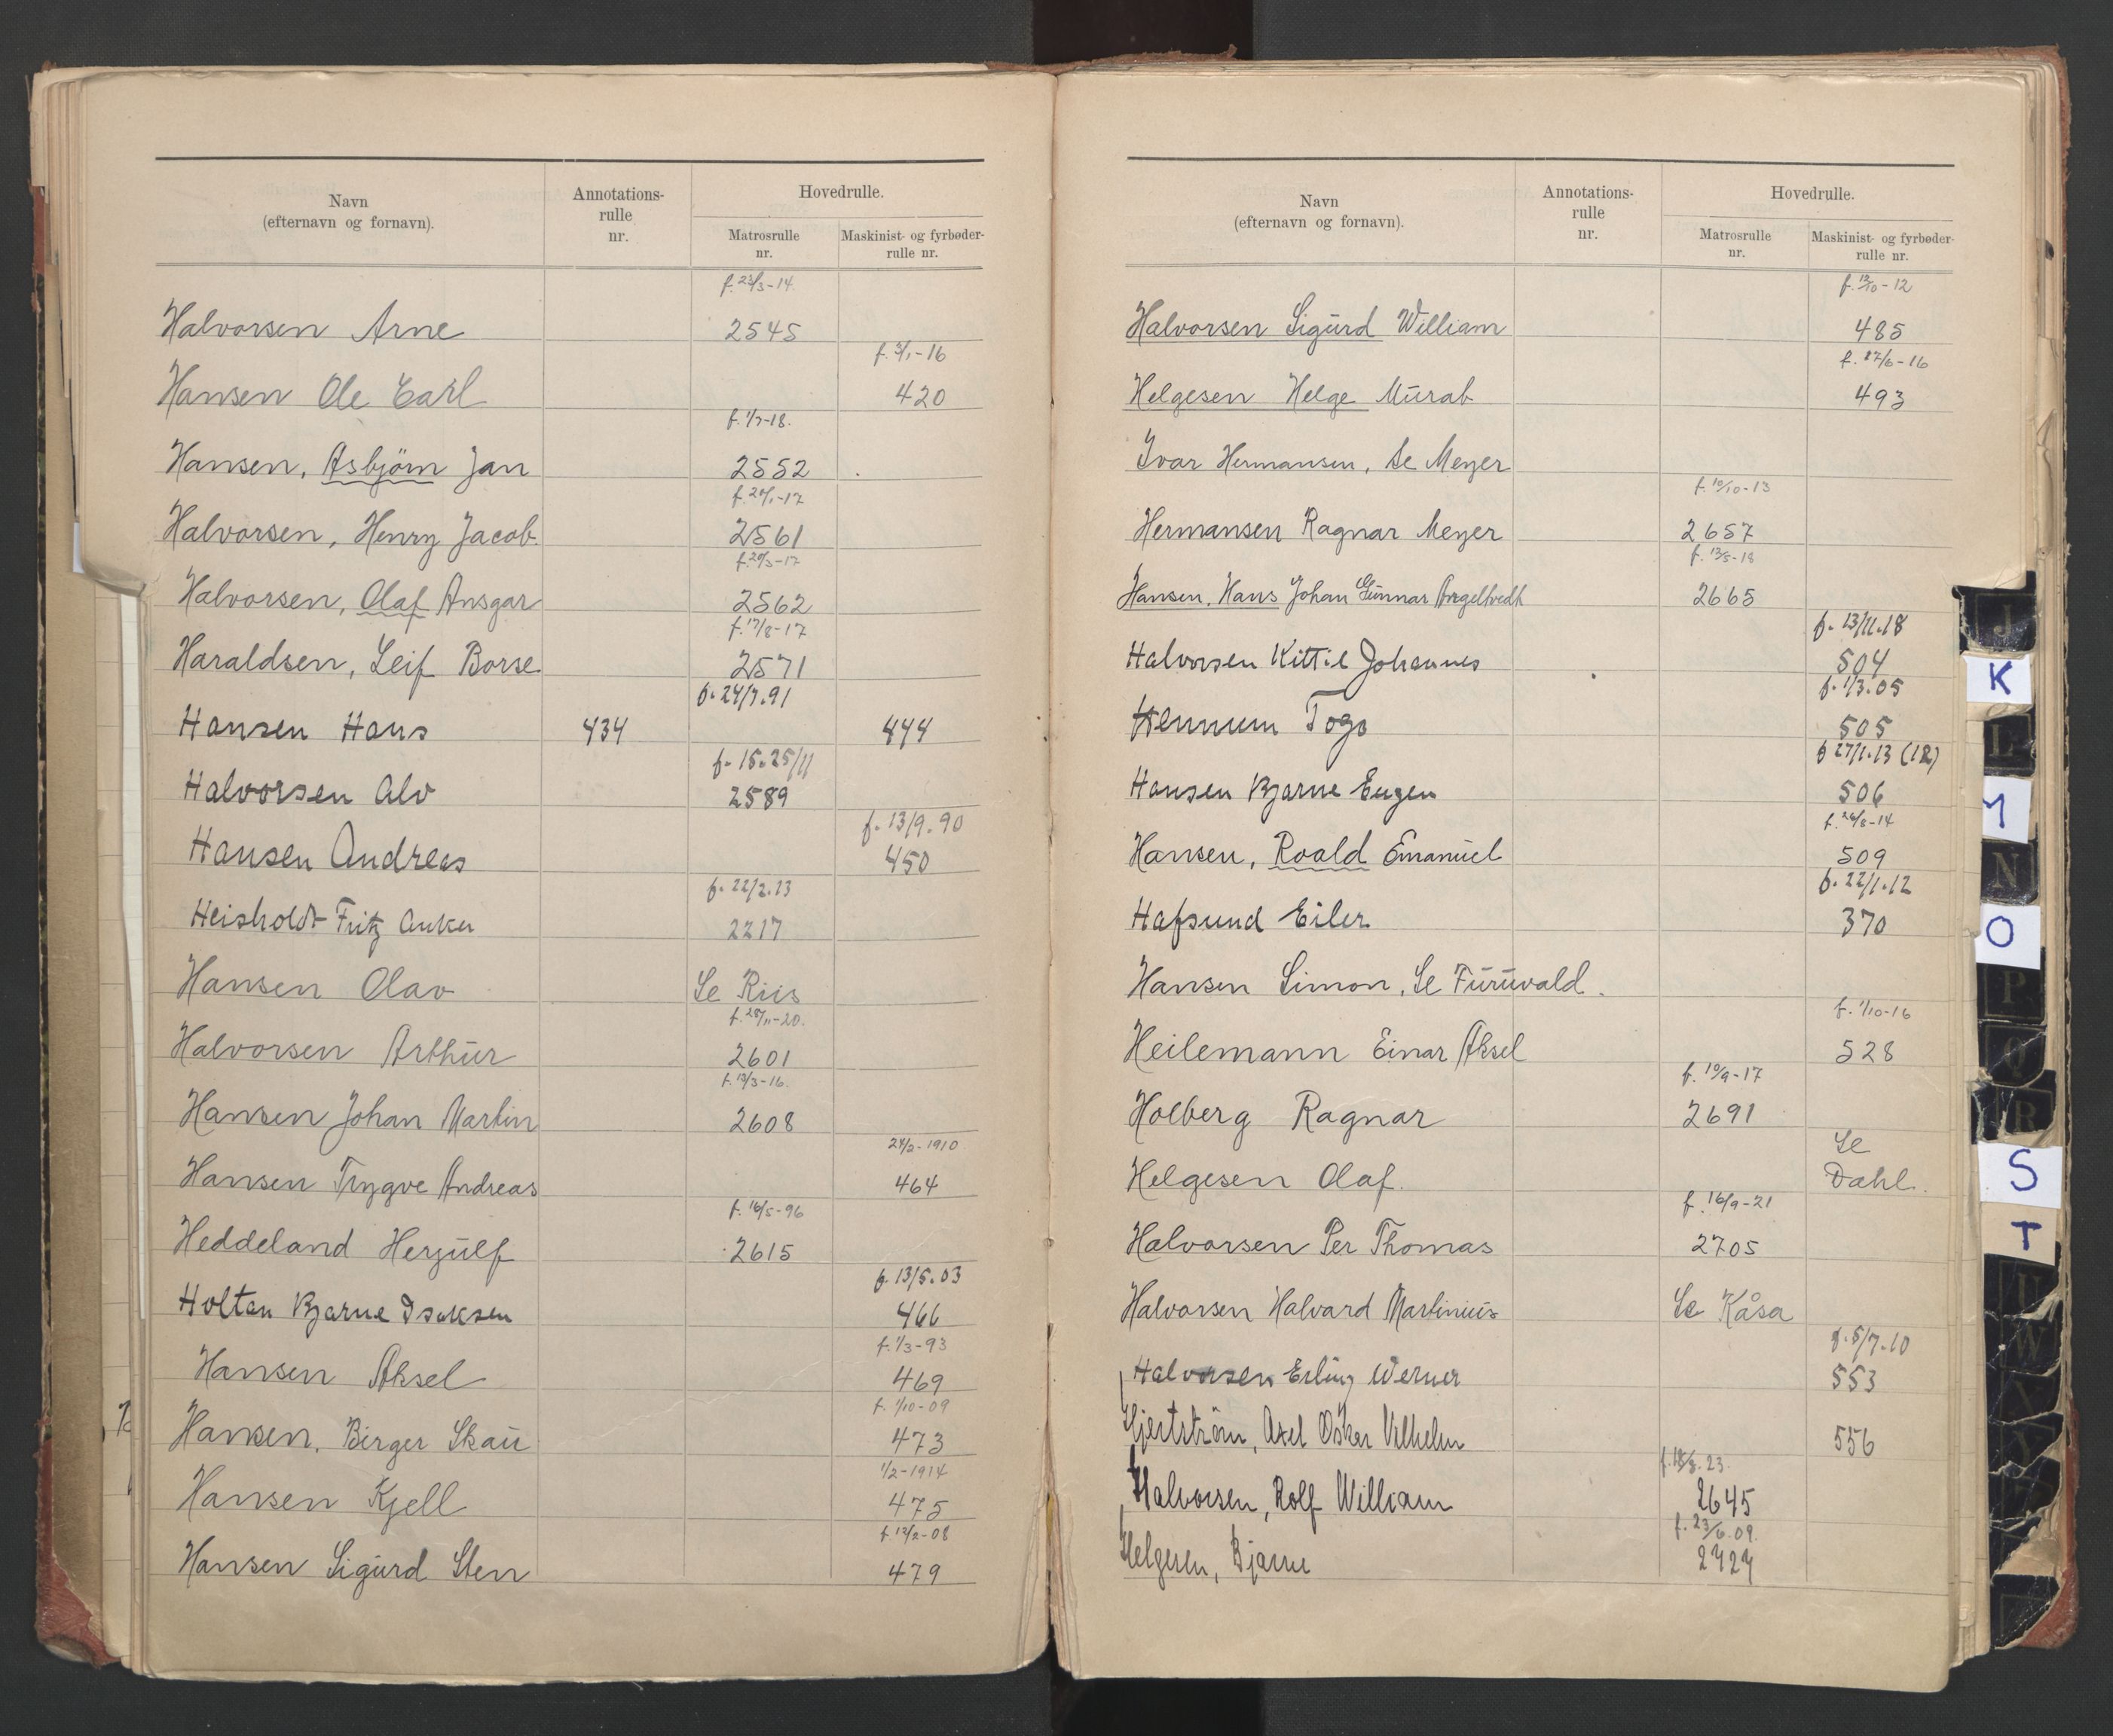 Navn
(efternavn og fornavn).
Annotations-
rulle
nr.
Hovedrulle.
Matrosrulle
nr.
Maskinist- og fyrbøder-
rulle nr.
f. 23/3-14.
Halvorsen Arne 2545
f. 3/1-16
Hansen Ole Carl 420
f. 1/7-18.
Hansen, Asbjörn Jan 2552
f. 20/1-17
Halvorsen, Henry Jacob 2561
f. 20/3-17
Halvorsen, Olaf Ansgar 2562
f. 17/8-17
Haraldsen, Leif Borse 2571
f. 24/7.91
Hansen Hans 434 444
f. 15. 25/11
Halvorsen Alv 2589
f. 13/9.90
Hansen Andreas 450
f. 22/2.13
Heisholdt Fritz Anker 2217
Hansen Olav Se Riis
f. 28/11-20.
Halvorsen Arthur 2601
f. 13/3-16.
Hansen Johan Martin 2608
24/2-1910
Hansen Trygve Andreas 464
f. 16/5-96
Heddeland Herjulf 2615
f. 13/5.03
Holtan Bjarne Isaksen 466
f. 1/3-93
Hansen Aksel 469
f. 1/10-09
Hansen, Birger Skau 473
1/2-1914
Hansen Kjell 475
f. 12/2-08
Hansen Sigurd Sten 479
Navn
(efternavn og fornavn).
Annotations-
rulle
nr.
Hovedrulle.
Matrosrulle
nr.
Maskinist- og fyrbøder-
rulle nr.
f. 12/10-12
Halvorsen Sigurd William 485
f. 27/6-16
Helgesen Helge Murat 493
Ivar Hermansen, Se Meyer
f. 10/10-13
Hermansen Ragnar Meyer 2657
f. 12/5-18
Hansen, Hans Johan Gunnar 2665
f. 13/11.18
Halvorsen Kittil Johannes 504
f. 1/3.05
Hennum Togo 505
f 27/1.13 (12)
Hansen Bjarne Eugen 506
f. 26/8-14
Hansen, Roald Emanuel 509
f. 22/1.12
Hafsund Eiler 370
Hansen Simon, Se Furuvald.
f. 1/10-16
Heilemann Einar Aksel 528
f. 10/9-17
Holberg Ragnar 2691
Se
Helgesen Olaf. Dahl.
f. 16/9-21
Halvorsen Per Thomas 2705
Halvorsen Halvard Martinius Se Kåsa
f. 5/7.10
Halvorsen Erling Werner 553
Hjertström, Axel Oskar Vilhelm 556
f. 18/8. 23.
Halvorsen, Rolf William 2645
f. 23/6.09.
Helgesen, Bjarne 2727
J
K
L
M
N
O
P
Q
R
S
T
U
W
X
Y